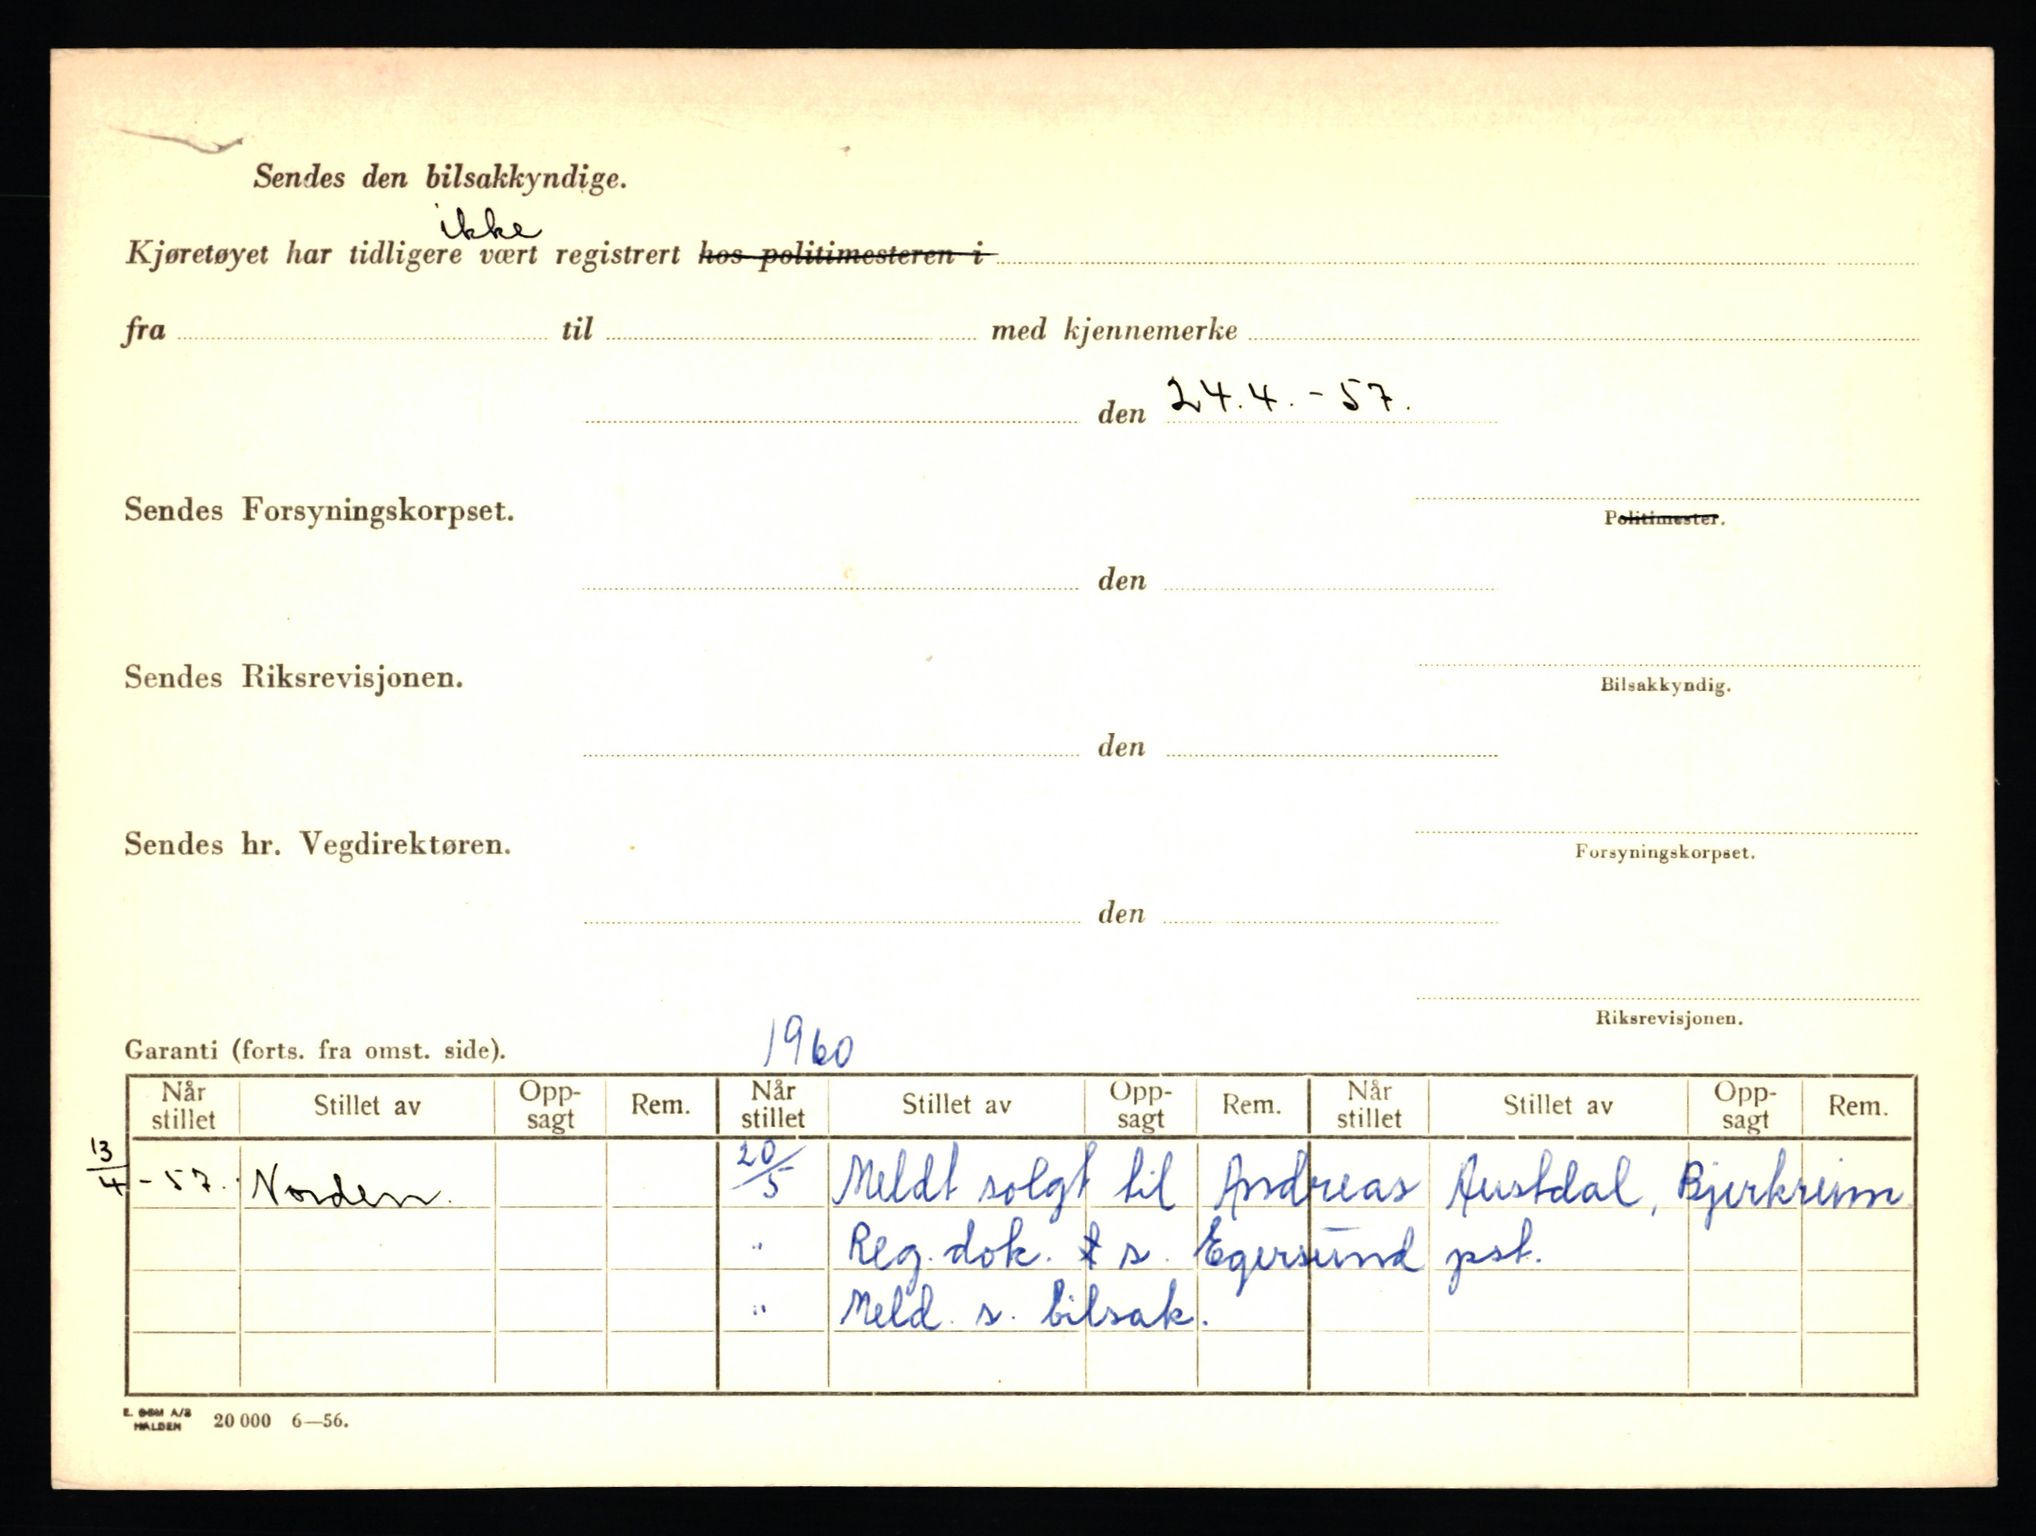 Sendes den bilsakkyndige.
ikke
Kjøretøyet har tidligere vært registrert hos politimesteren i
fra til med kjennemerke
den 24.4.-57.
Sendes Forsyningskorpset.
Politimester.
den
Sendes Riksrevisjonen.
Bilsakkyndig.
den
Sendes hr. Vegdirektøren.
Forsyningskorpset.
den
Riksrevisjonen.
Garanti (forts. fra omst. side). 1960
Når stillet Stillet av Opp-sagt Rem. Når stillet Stillet av Opp-sagt Rem. Når stillet Stillet av Opp-sagt Rem.
13/4 -57. Norden. 20/5 Meldt solgt til Andreas Austdal, Bjerkreim
" Reg. dok. s. Egersund pst.
" Meld. s. bilsak.
HALDEN 20 000 6—56.